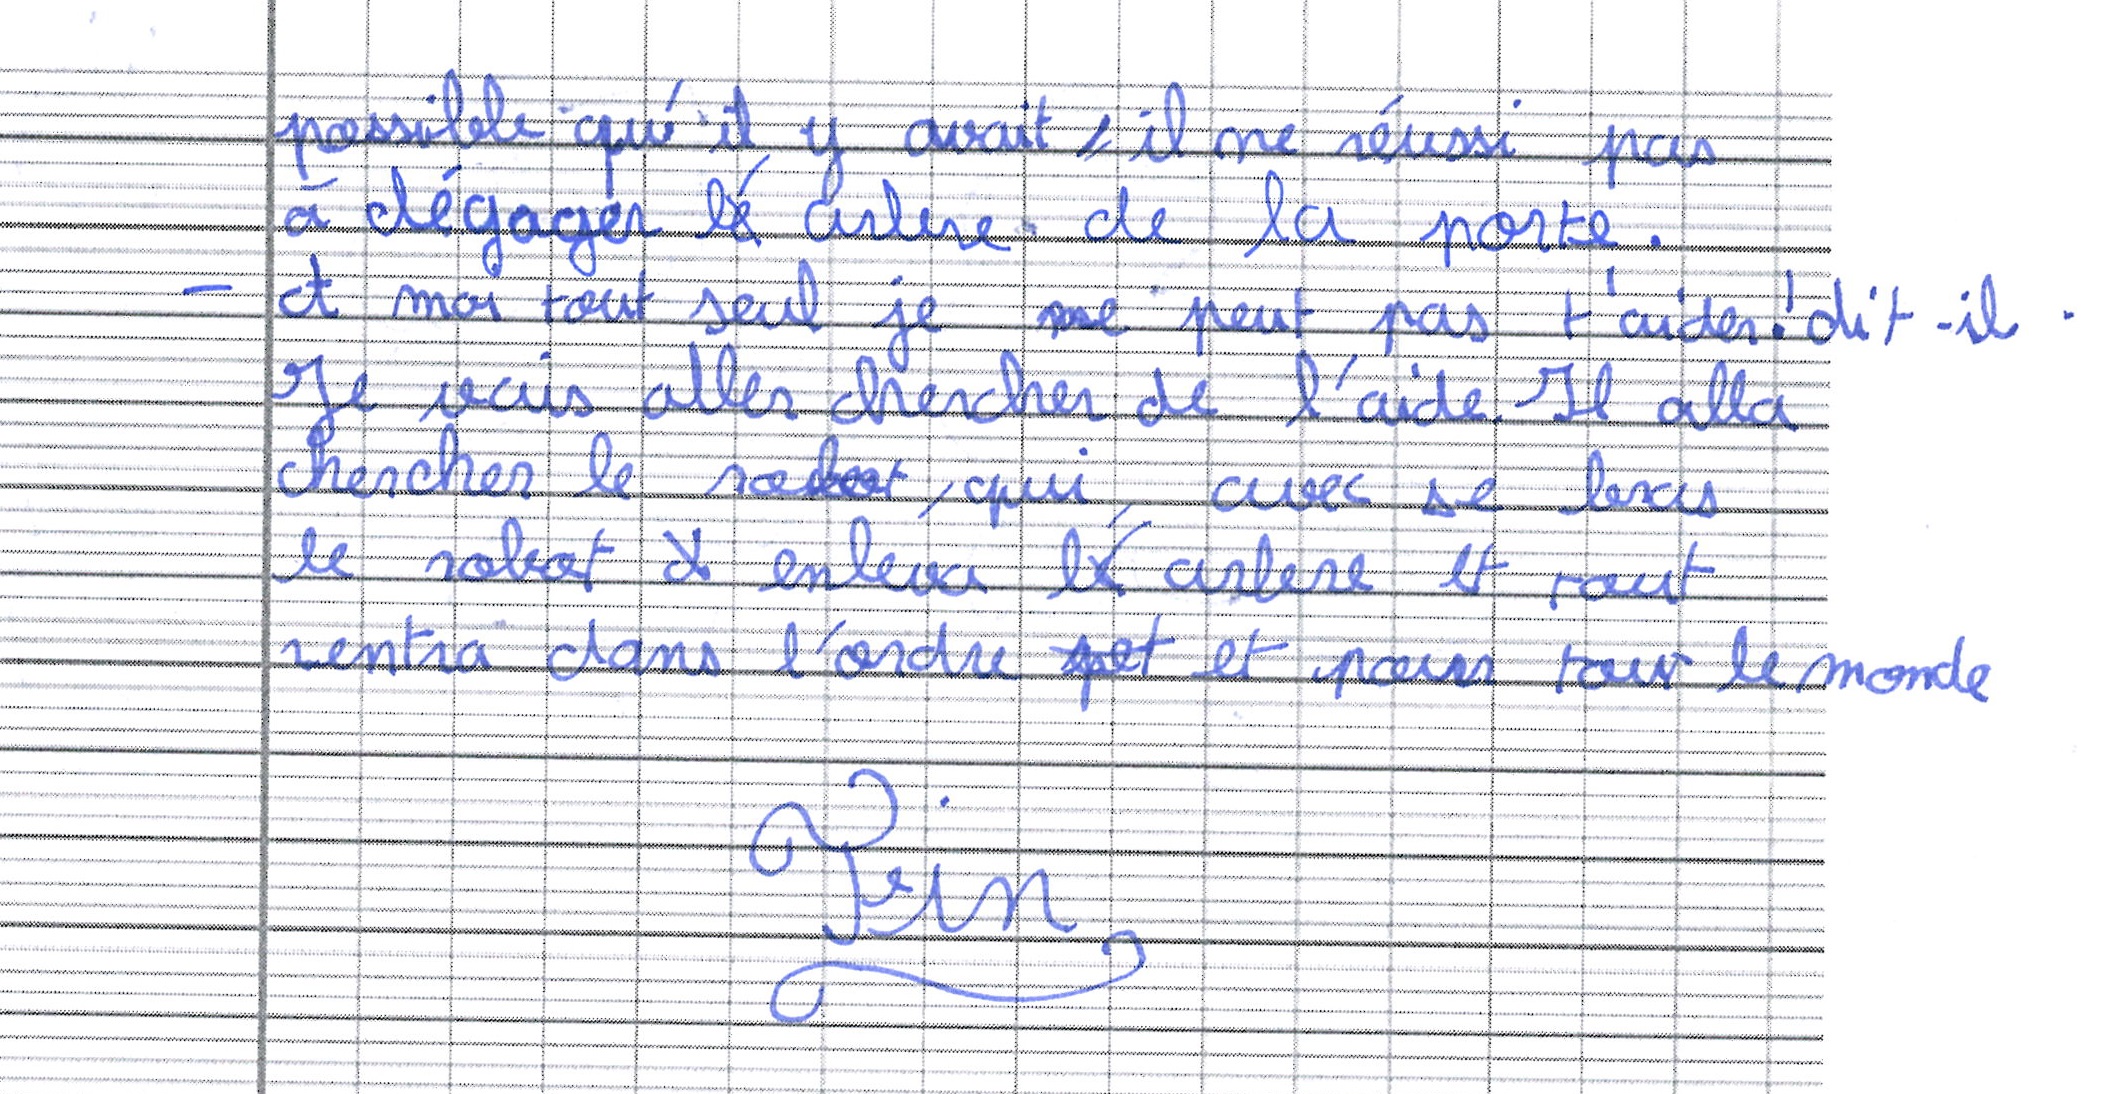 possible qu'il y avait, il ne réussi pas
à dégager l'arbre de la porte.
- et moi tout seul je ne peut pas t'aider! dit-il.
Je vais aller chercher de l'aide. Il alla
chercher le robot, qui, avec se bras
le robot enleva l'arbre et tout
rentra dans l'ordre et pour tout le monde
Fin